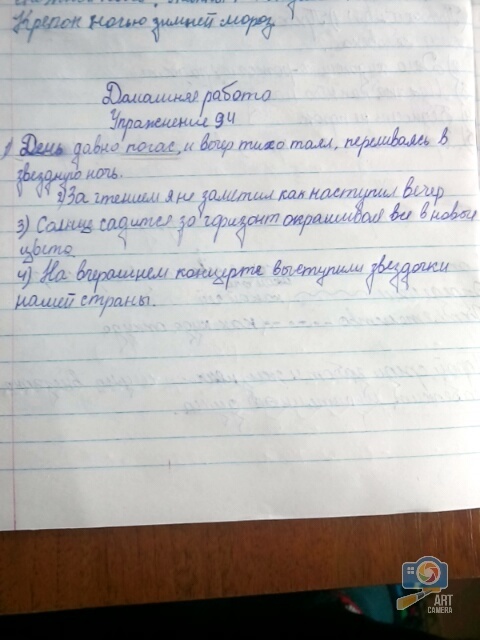 Крепок ночью зимней мороз
Домашняя работа
Упражнение 94
1) День давно погас, и вечер тихо таял, переливаясь в
звездную ночь.
2) За чтением я не заметил как наступил вечер
3) Солнце садится за горизонт окрашивая все в новые
цвета.
4) На вчерашнем концерте выступили звездочки
нашей страны.
ART
CAMERA